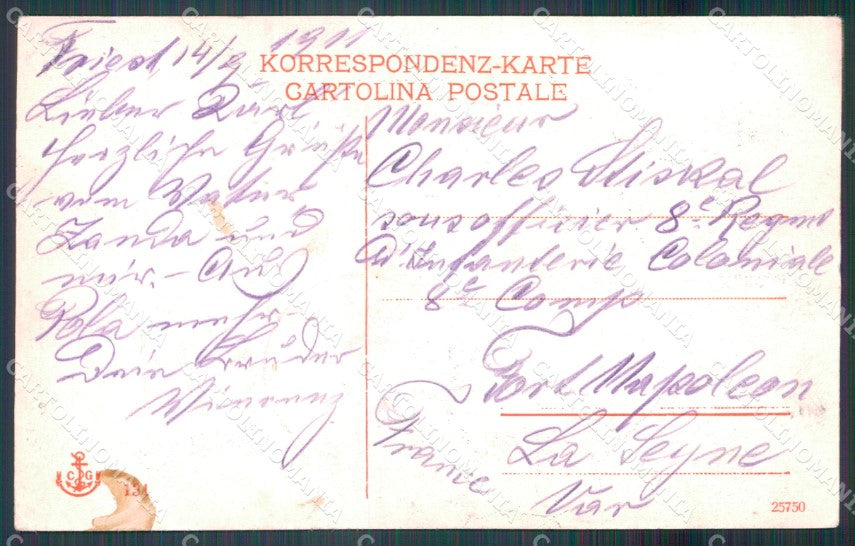 Triest, 14/9 1911
KORRESPONDENZ-KARTE
CARTOLINA POSTALE
Lieber Karl
Herzliche Grüße
vom Vater,
und
mir -
Pola mehr -
Dein Bruder
Monsieur
Charles Stiskal
sousofficier 8e Regmt
d'Infanterie Coloniale
8e Comp
Fort Napoleon
La Seyne
Var
France
C G
131
25750
CARTOLINOMANIA